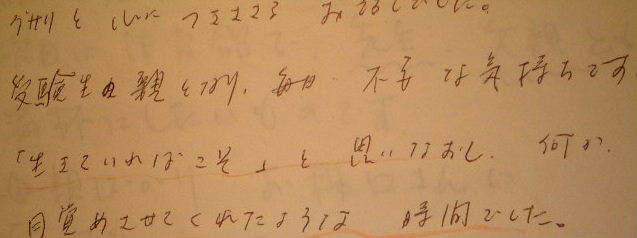 グサリと心につきささる お話でした。
受験生の親となり、毎日 不安な気持ちです
「生きていればこそ」と 思いなおし、何か、
目覚めさせてくれたような 時間でした。